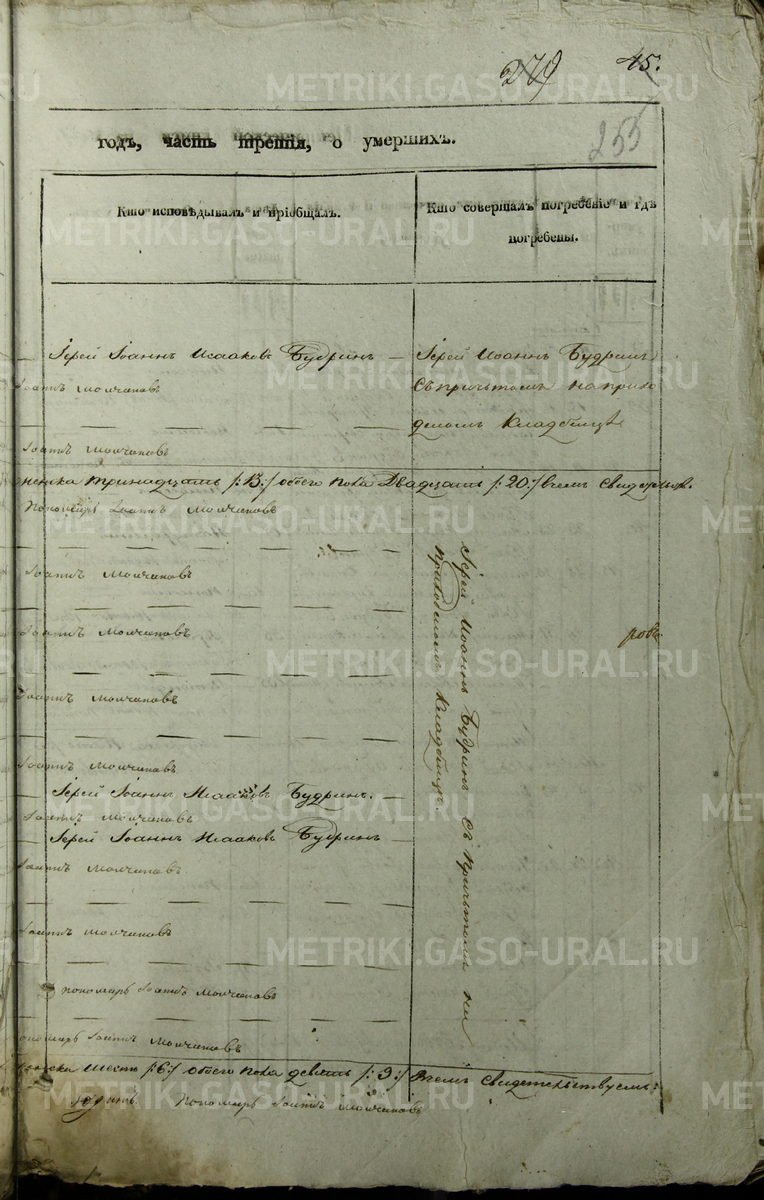 279 45.
253
годъ, часть третія, о умершихъ.
Кто исповѣдывалъ и пріобщалъ.
Кто совершалъ погребеніе и гдѣ погребены.
Іерей Іоаннъ Исааковъ Будринъ
Іерей Иоаннъ Будринъ
съ причьтомъ на прихо
Іоаннъ Молчановъ
дскомъ кладбищѣ
Іоаннъ Молчановъ
женска тринадцать /:13:/ обоего пола двадцать /:20:/ въ чемъ свидетель
Пономарь Іоаннъ Молчановъ
Іоаннъ Молчановъ
Іоаннъ Молчановъ
Іоаннъ Молчановъ
Іоаннъ Молчановъ
Іерей Іоаннъ Исааковъ Будринъ.
Іоаннъ Молчановъ
Іерей Іоаннъ Исааковъ Будринъ
Іоаннъ Молчановъ
Іоаннъ Молчановъ
пономарь Іоаннъ Молчановъ
пономарь Іоаннъ Молчановъ
Іерей Иоаннъ Будринъ съ причьтомъ на
приходскомъ кладбищѣ
женска шесть /:6:/ обоего пола девять /:9:/ въ чемъ свидетельствуемъ:
Пономарь Іоаннъ Молчановъ
METRIKI.GASO-URAL.RU